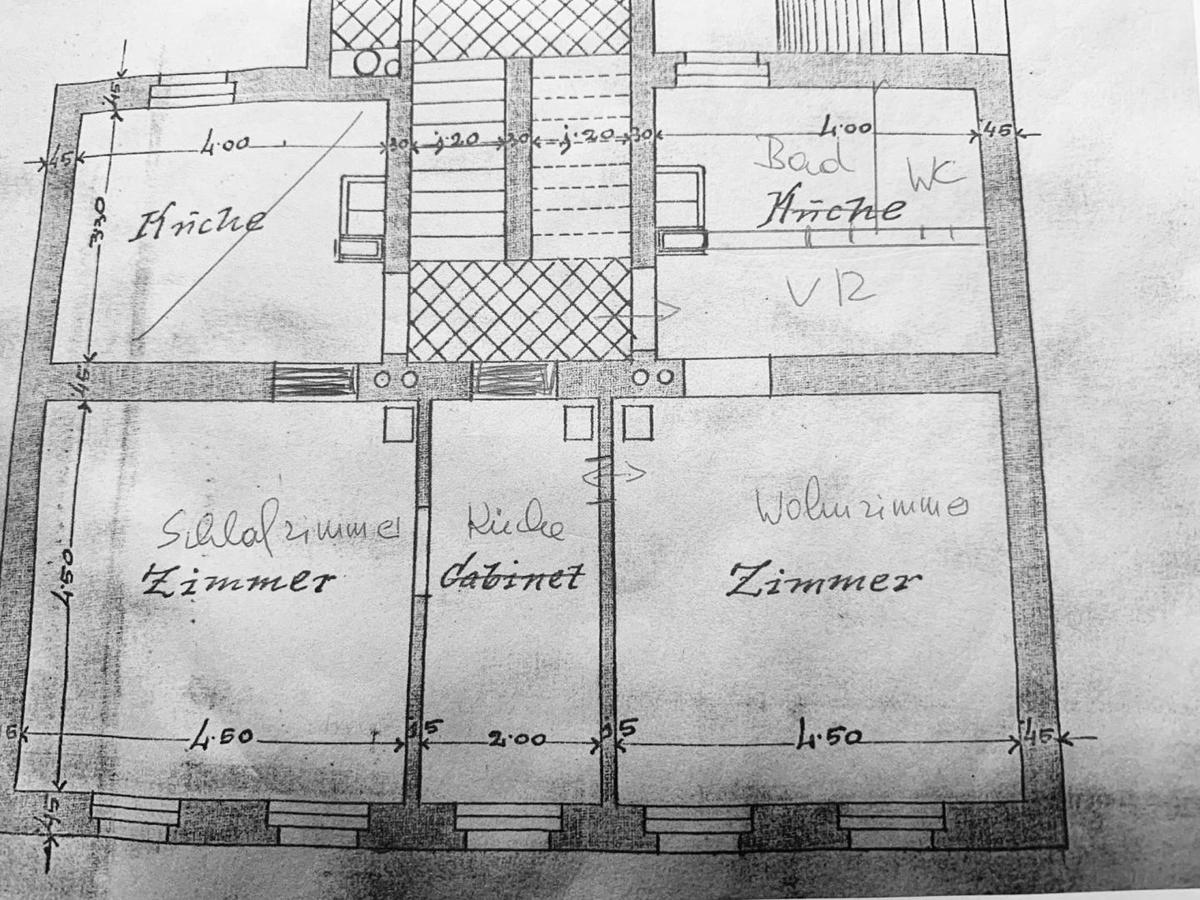 45
45
4.00
30
1.20
30
1.20
30
4.00
45
Bad
WC
Küche
3.30
Küche
VR
45
Schlafzimmer
Küche
Wohnzimmer
Zimmer
Cabinet
Zimmer
4.50
4.50
15
2.00
15
4.50
45
45